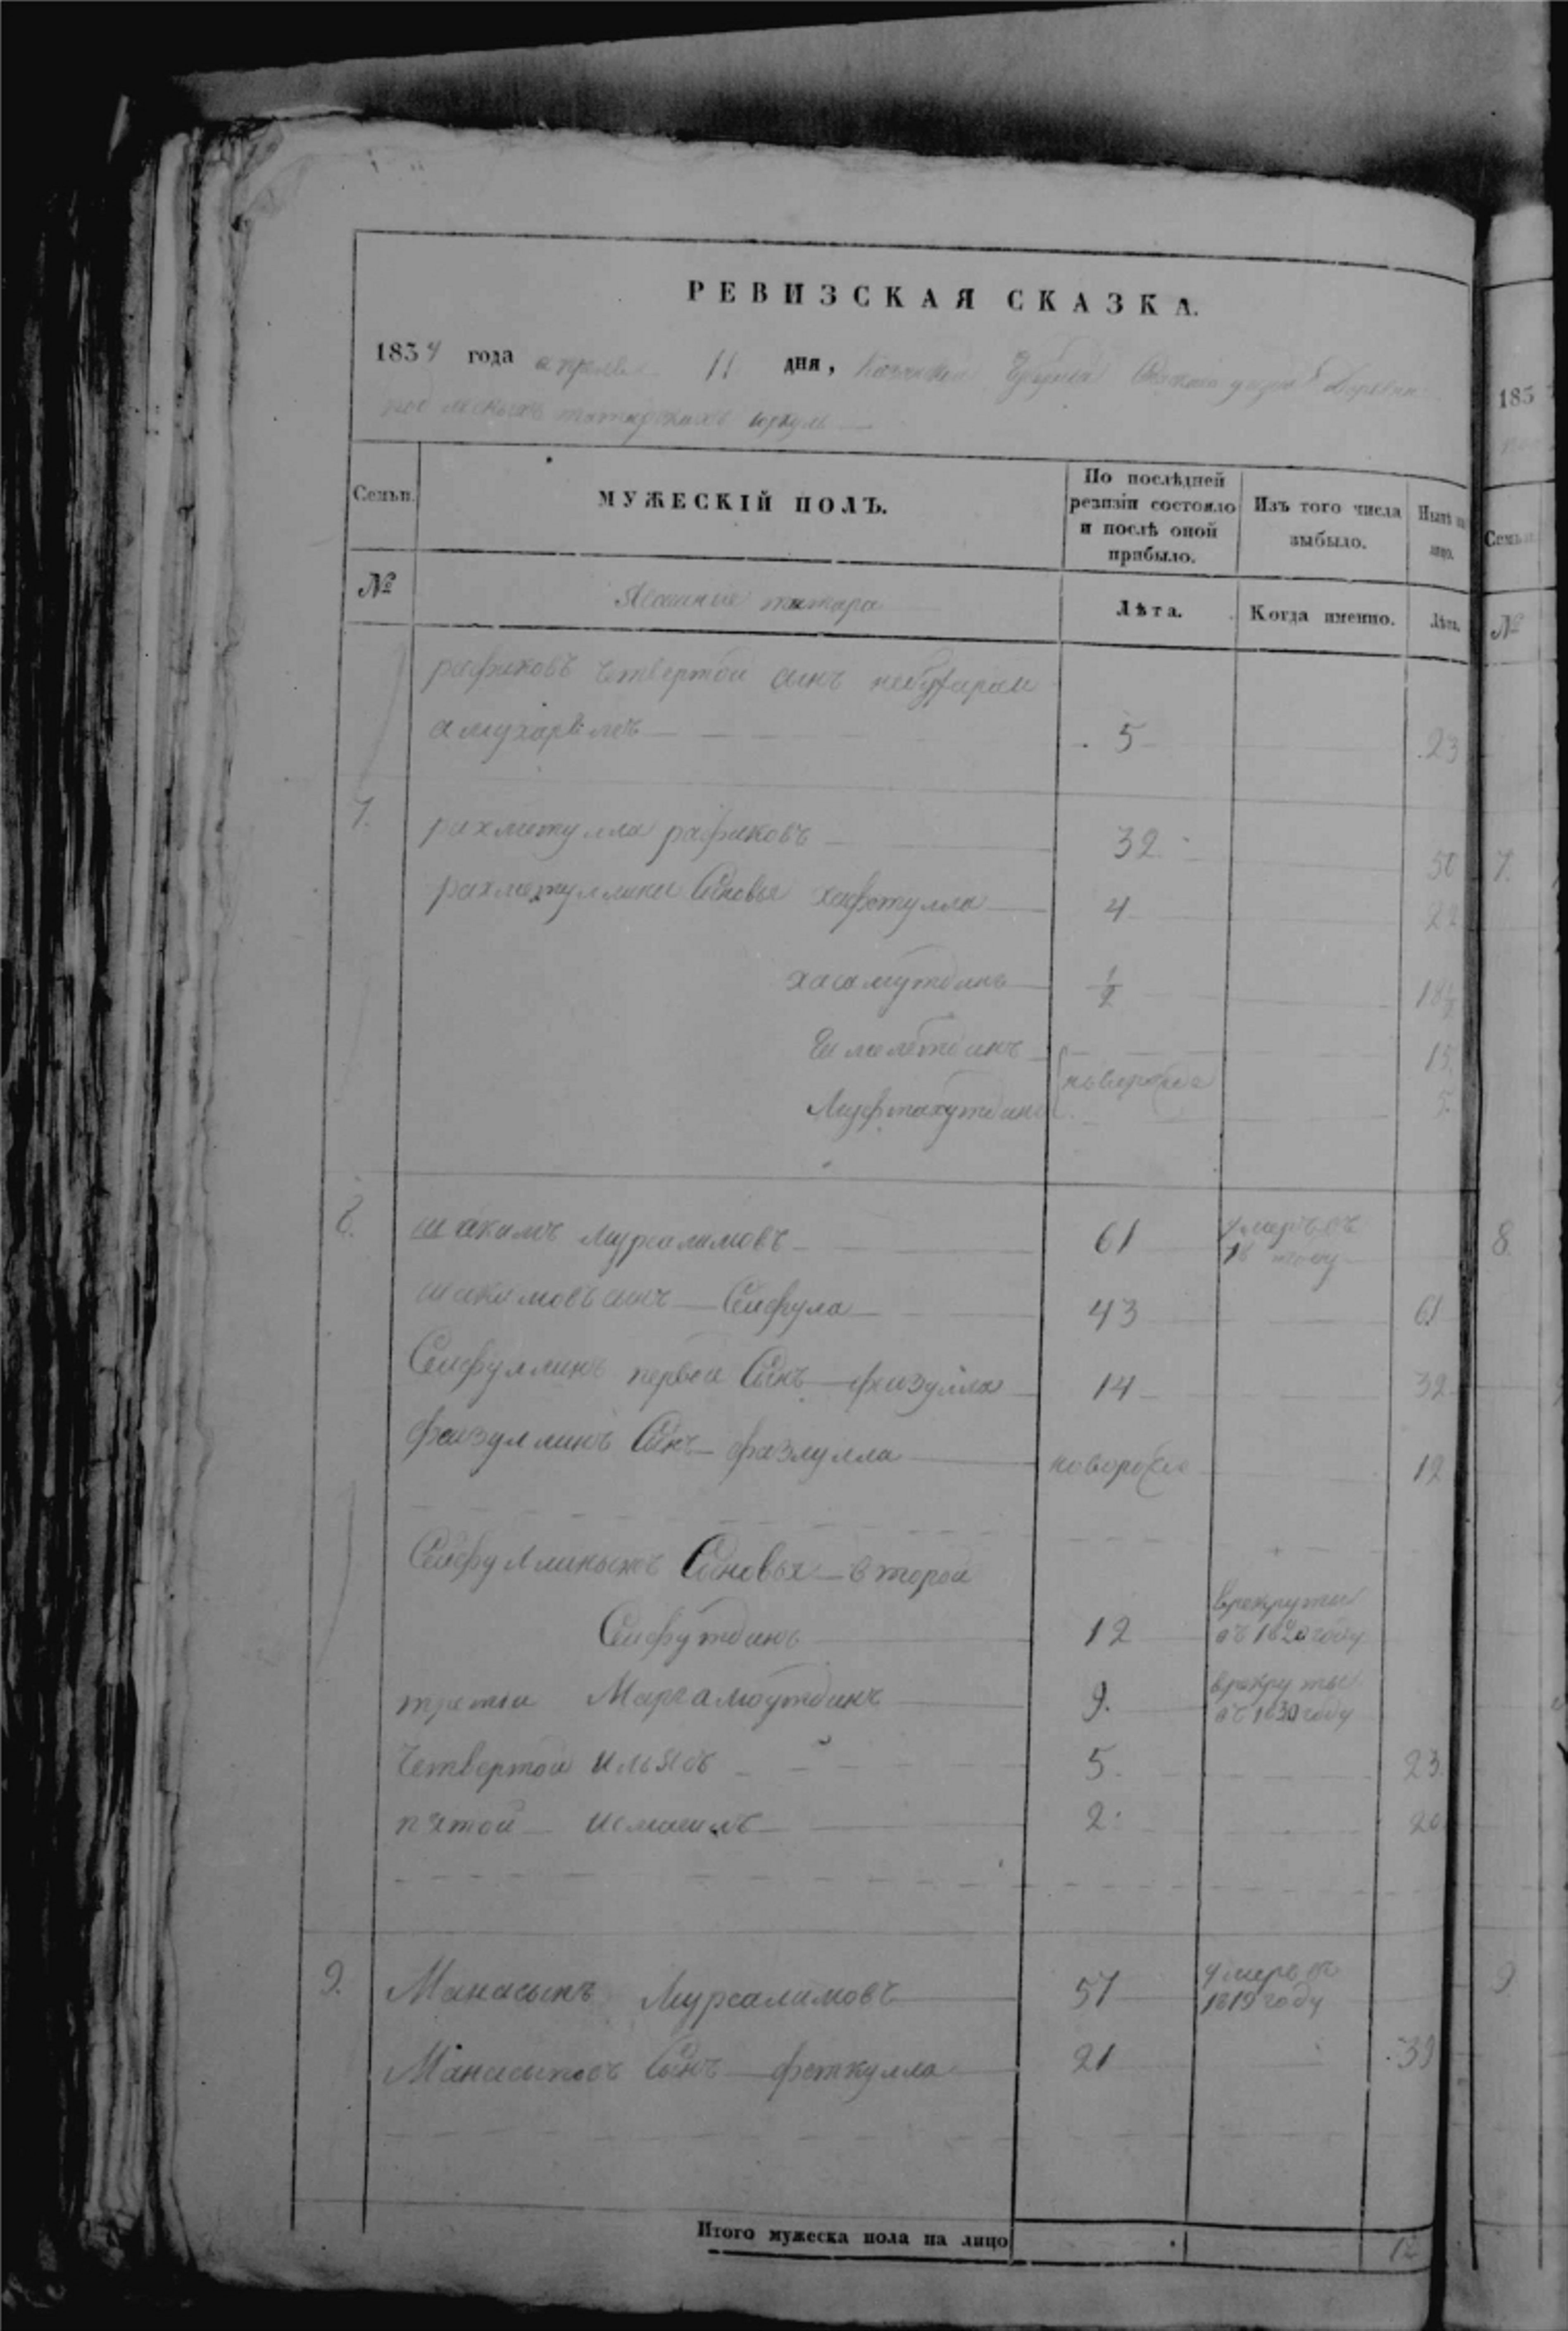 РЕВИЗСКАЯ СКАЗКА.
1834 года апреля 11 дня, Казанской Губернии Спаскаго уезда Деревни
татарскаго юркуль
Семьи. МУЖЕСКІЙ ПОЛЪ. По послѣдней ревизіи состояло и послѣ оной прибыло. Изъ того числа выбыло. Нынѣ на лицо.
№ Ясашные татара Лѣта. Когда именно. Лѣта.
рафиковъ четвертой сынъ
5 23
7. рахметулла рафиковъ 32 50
рахметуллины Сыновья хафетулла 4 22
хасамутдинъ ½ 18½
15
Муфтахутдинъ новорожде 5
8. шакимъ мурсалимовъ 61 умеръ въ
18 году
шакимовъ сынъ Сейфула 43 61
Сейфуллинъ первой Сынъ фейзулла 14 32
фейзуллинъ Сынъ фазлулла новорожде 12
Сейфуллиныхъ Сыновья второй
Сейфутдинъ 12 в рекруты
въ 1820 году
третій 9. в рекруты
въ 1830 году
четвертой ильясъ 5. 23.
пятой исмаилъ 2. 20
9. Манасыпъ Мурсалимовъ 57 умеръ въ
1819 году
Манасыповъ Сынъ феткулла 21 39
Итого мужеска пола на лицо 12
185
Семьи
№
7.
8.
9